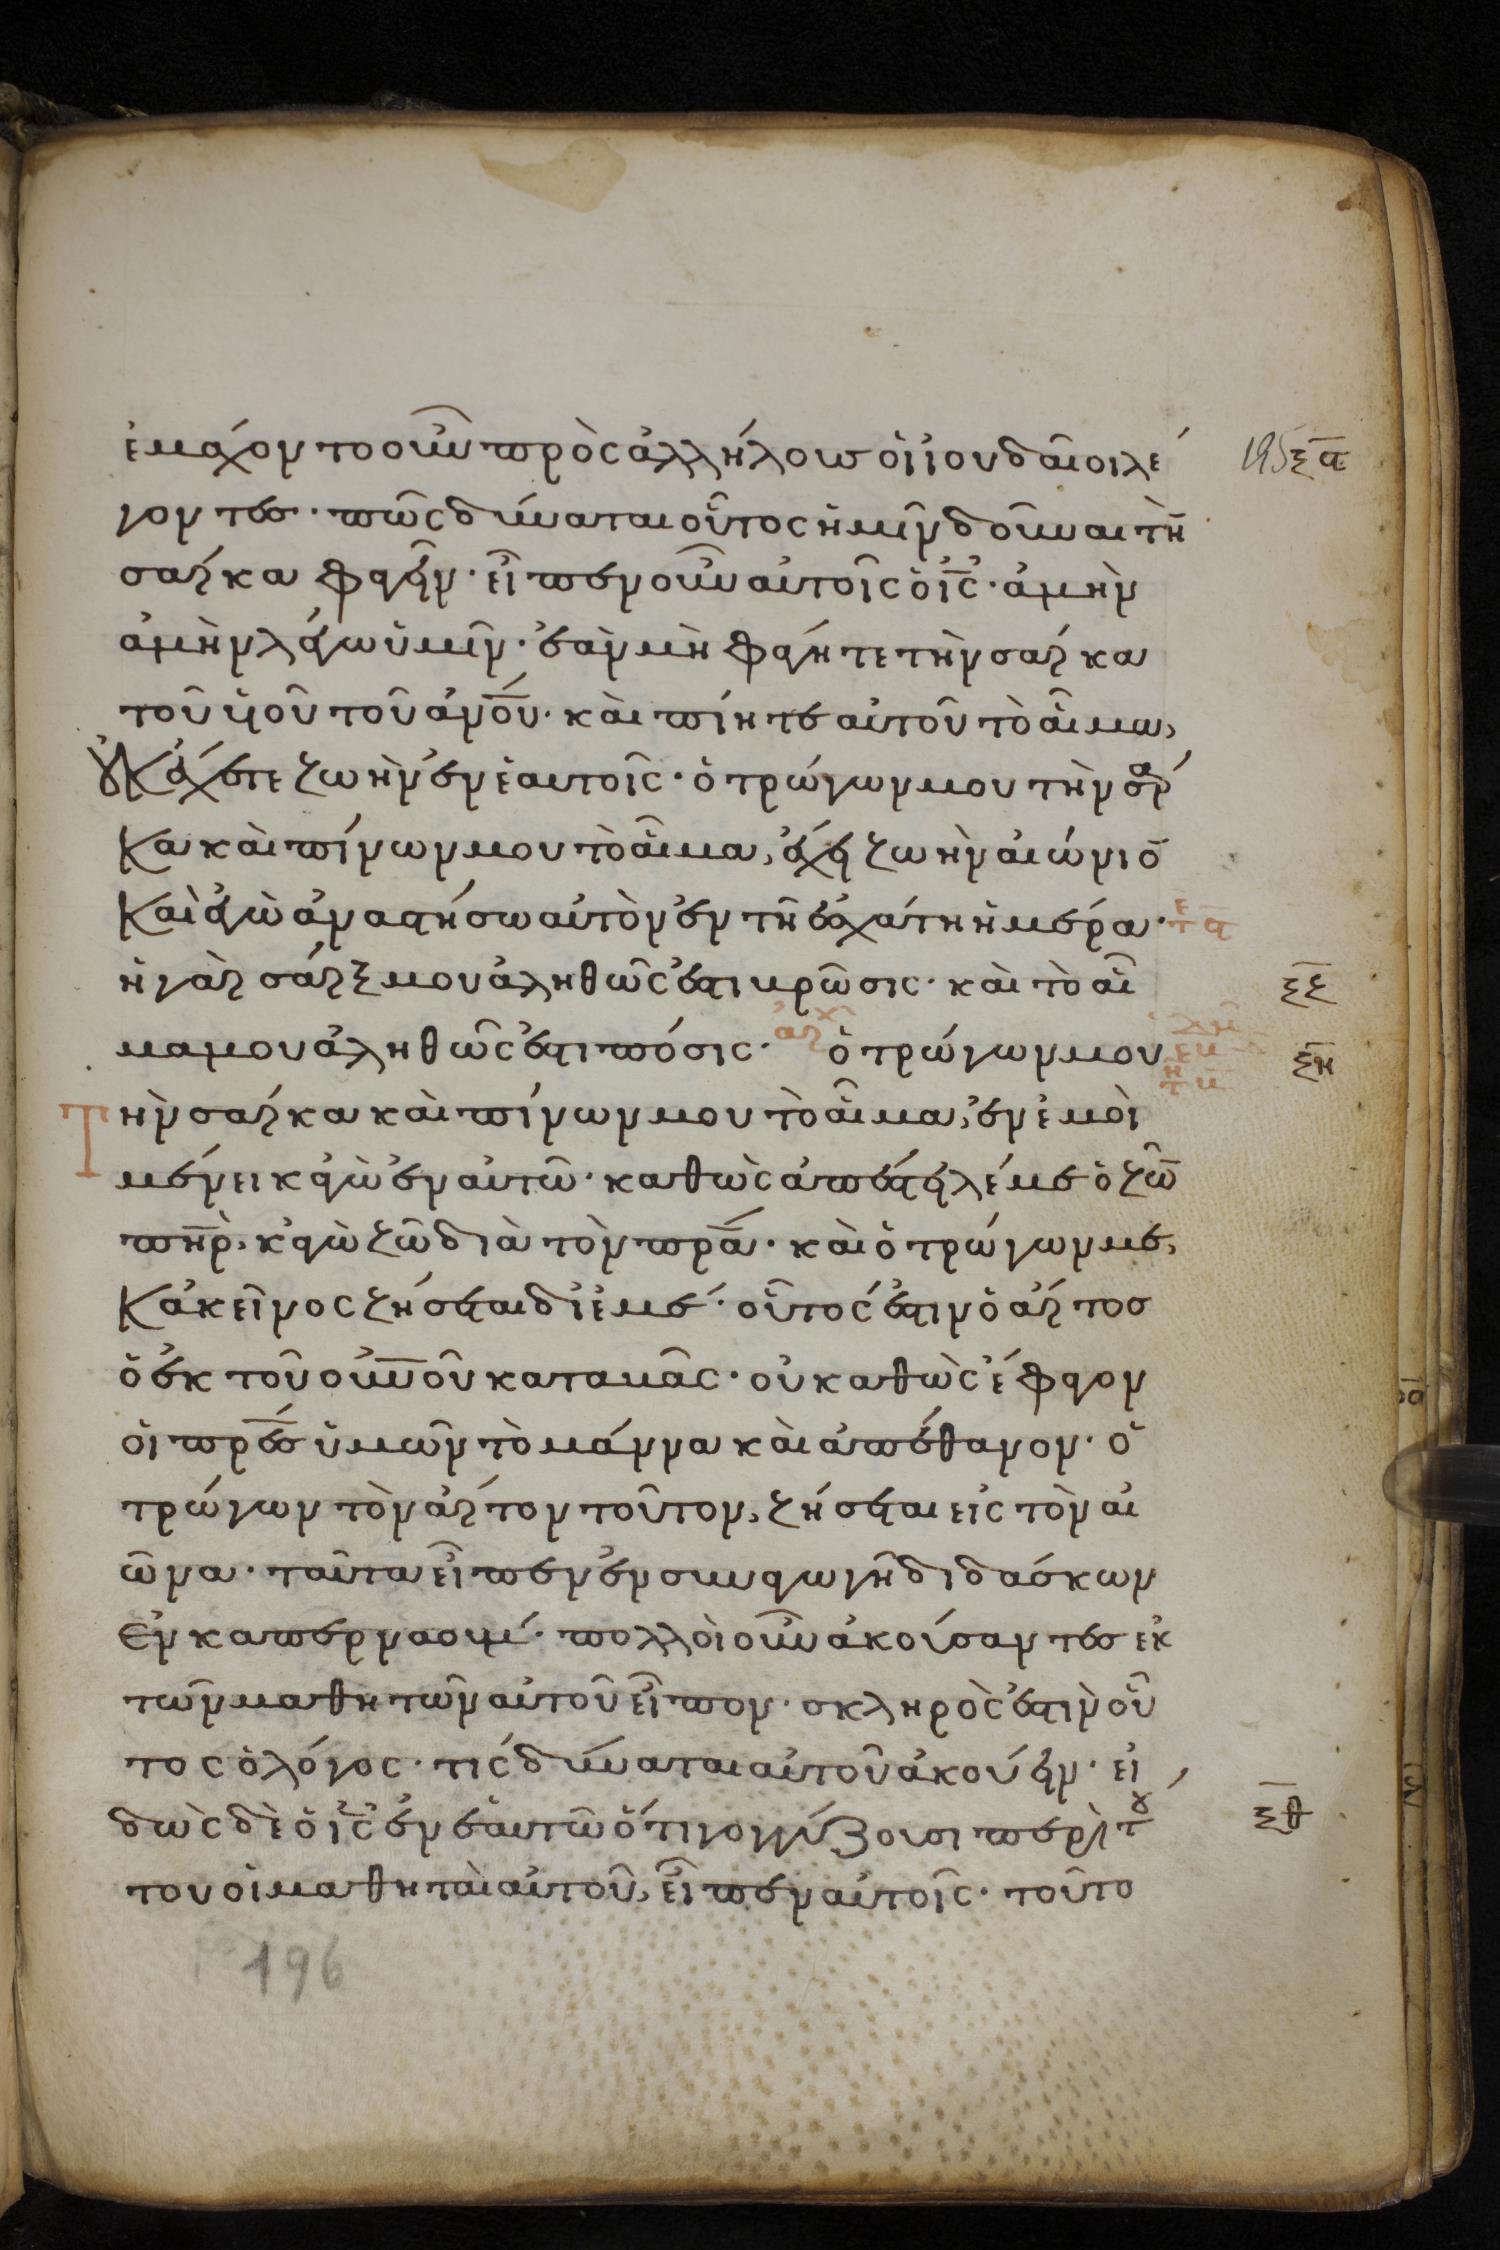 ἐμάχοντο οὖν πρὸς ἀλλήλους οἱ ἰουδαῖοι λέ 195 ξς
γοντες· πῶς δύναται οὗτος ἡμῖν δοῦναι τὴν
σάρκα φαγεῖν· εἶπεν οὖν αὐτοῖς ὁ ις· ἀμὴν
ἀμὴν λέγω ὑμῖν· ἐὰν μὴ φάγητε τὴν σάρκα
τοῦ υἱοῦ τοῦ ανου· καὶ πίητε αὐτοῦ τὸ αἷμα,
οὐκ ἔχετε ζωὴν ἐν ἑαυτοῖς· ὁ τρώγων μου τὴν σάρ
κα καὶ πίνων μου τὸ αἷμα, ἔχει ζωὴν αἰώνιον
καὶ ἐγὼ ἀναστήσω αὐτὸν ἐν τῇ ἐσχάτῃ ἡμέρα·
ἡ γὰρ σάρξ μου ἀληθῶς ἐστι βρῶσις· καὶ τὸ αἷ ξζ
μα μου ἀληθῶς ἐστι πόσις· ἀρχ ὁ τρώγων μου ξη
τὴν σάρκα καὶ πίνων μου τὸ αἷμα, ἐν ἐμοὶ
μένει κἀγὼ ἐν αὐτῶ· καθὼς ἀπέστειλέ με ὁ ζῶν
πηρ, κἀγὼ ζῶ διὰ τὸν πρα· καὶ ὁ τρώγων με,
κἀκεῖνος ζήσεται δι ἐμέ· οὗτός ἐστιν ὁ ἄρτος
ὁ ἐκ τοῦ οὐνοῦ καταβάς· οὐ καθὼς ἔφαγον
οἱ πρες ὑμῶν τὸ μάννα καὶ ἀπέθανον· ὁ
τρώγων τὸν ἄρτον τοῦτον, ζήσεται εἰς τὸν αἰ
ῶνα· ταῦτα εἶπεν ἐν συναγωγῇ διδάσκων
ἐν καπερναούμ· πολλοὶ οὖν ἀκούσαντες ἐκ
τῶν μαθητῶν αὐτοῦ εἶπον· σκληρὸς ἐστιν οὗ
τος ὁ λόγος· τίς δύναται αὐτοῦ ἀκούειν· εἰ
δὼς δὲ ὁ ις ἐν ἑαυτῶ ὅτι γογγύζουσι περὶ τού ξθ
του οἱ μαθηταὶ αὐτοῦ, εἶπεν αὐτοῖς· τοῦτο
196